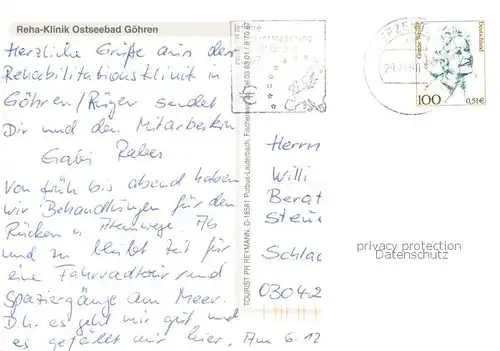 Reha-Klinik Ostseebad Göhren
Herzliche Grüße aus der
Rehabilitationsklinik in
Göhren/Rügen sendet
Dir und den Mitarbeitern
Gabi
Von früh bis abend haben
wir Behandlungen für den
Rücken u. Atemwege. Ab
und zu bleibt Zeit für
eine Fahrradtour und
Spaziergänge am Meer.
D.h. es geht mir gut und
es gefällt mir hier. Am 6.12
TOURIST PR REYMANN, D-18581 Putbus-Lauterbach,
Deutschland
100
0,51€
Herrn
Willi
Berat
Steue
Schlac
03042
privacy protection
Datenschutz